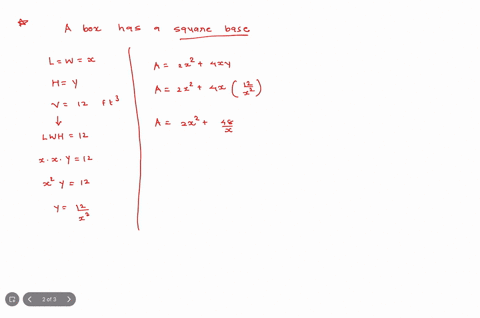 A box has a square base
L = W = x
H = y
V = 12 ft³
↓
LWH = 12
x · x · y = 12
x² y = 12
y = 12/x²
A = 2x² + 4xy
A = 2x² + 4x (12/x²)
A = 2x² + 48/x
2 of 3